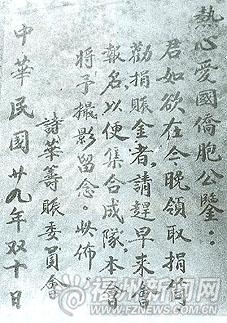 熱心愛國僑胞公鑒：
君如欲在今晚領取捐俻
勸捐賑金者，請趕早来會
報名以便集合成隊本會
將予撮影留念。此佈
詩華籌賑委員會
中華民國廿九年双十日
福州新闻网
WWW.FZNEWS.COM.CN